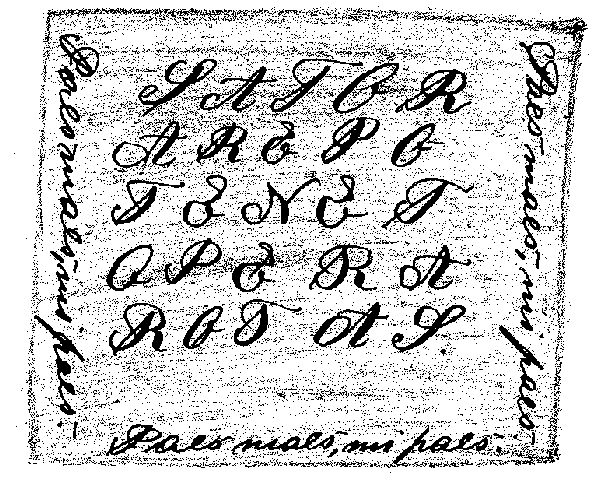 S A T O R
A R E P O
T E N E T
O P E R A
R O T A S
mi paes.-
Paes maes, mi paes.-
Paes maes, mi paes.